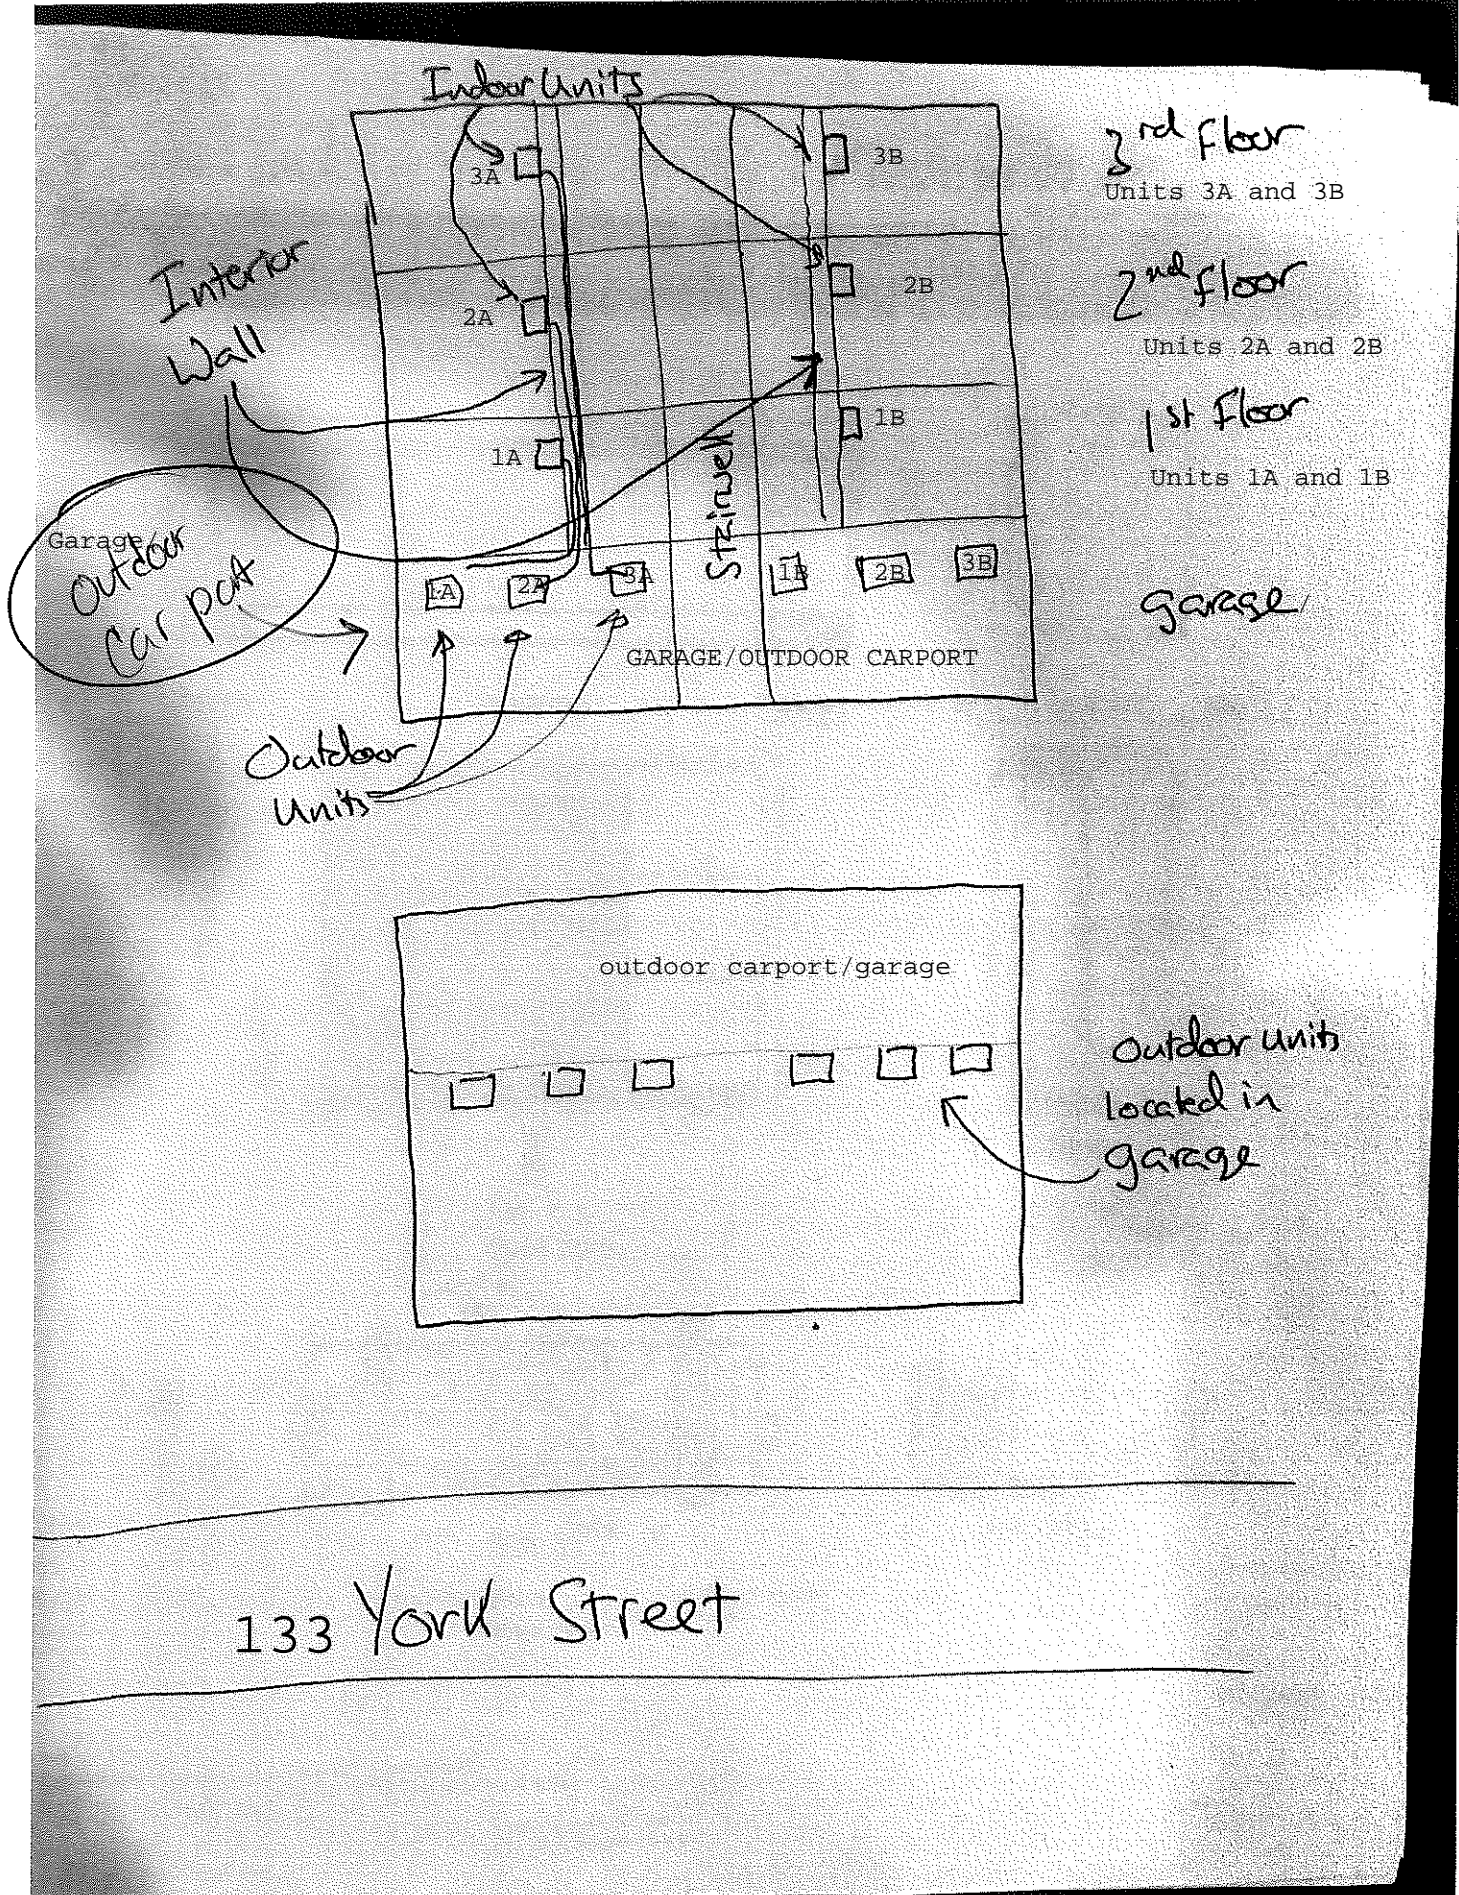 Indoor Units
3rd Floor
3A
3B
Units 3A and 3B
Interior
Wall
2nd Floor
2A
2B
Units 2A and 2B
1st Floor
1A
1B
Units 1A and 1B
Stairwell
Garage/
Outdoor
Car port
1A
2A
3A
1B
2B
3B
garage/
GARAGE/OUTDOOR CARPORT
Outdoor
Units
outdoor carport/garage
Outdoor units
located in
garage
133 York Street